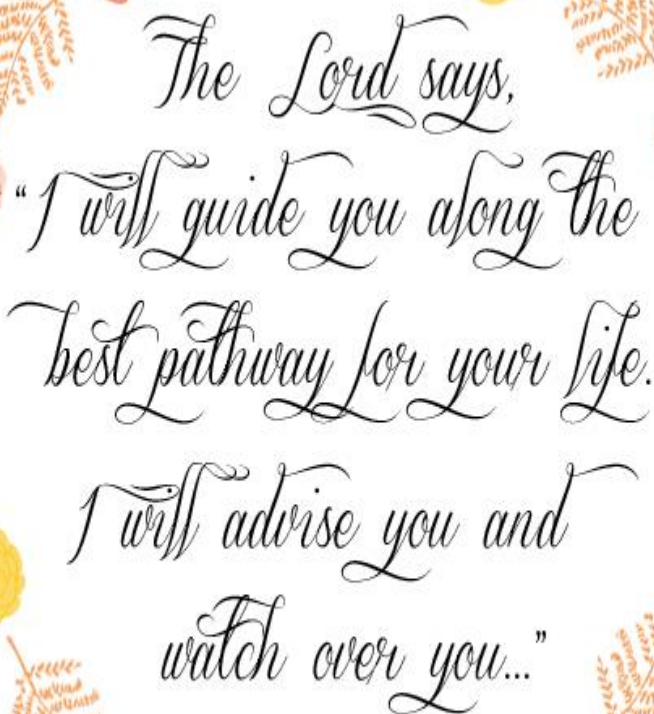 The Lord says,
“I will guide you along the
best pathway for your life.
I will advise you and
watch over you...”